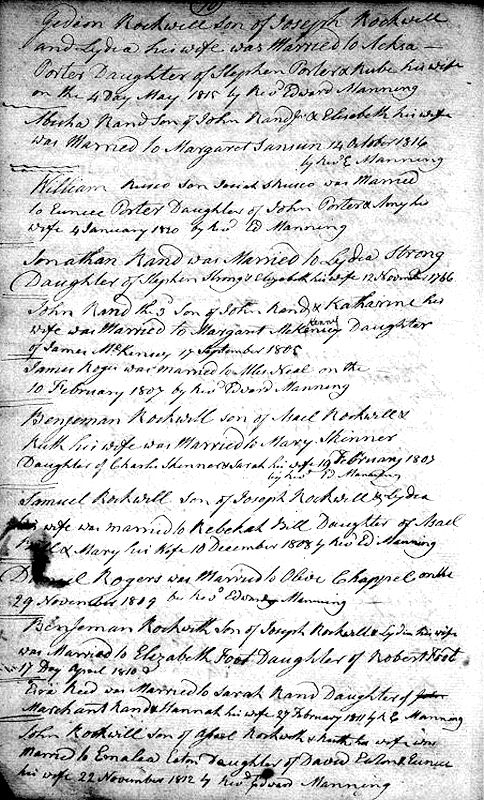 Gideon Rockwell son of Joseph Rockwell
and Lydia his wife was Married to Achsa
Porter Daughter of Stephen Porter & Rube his wife
on the 4 Day May 1815 by Revd Edward Manning
Abisha Rand son of John Rand Jr & Elisabeth his wife
was Married to Margaret 14 October 1816
by Revd E Manning
William Rusco Son Rusco was Married
to Eunice Porter Daughter of John Porter & Amy his
wife 4 January 1810 by Revd Ed Manning
Jonathan Rand was Married to Lydia Strong
Daughter of Stephen Strong & Elizabeth his wife 12 November 1766
John Rand the 3 Son of John Rand & Katharine his
wife was Married to Margant Daughter
of James 17 September 1805
James was married to Neal on the
10 February 1807 by Revd Edward Manning
Benjeman Rockwell Son of Asael Rockwell &
Ruth his wife was Married to Mary Skinner
Daughter of Charls Skinner & Sarah his wife 19 February 1807
by Revd Ed Manning
Samuel Rockwell Son of Joseph Rockwell & Lydia
his wife was married to Rebekah Bill Daughter of Asael
Bill & Mary his Wife 10 December 1808 by Revd Ed Manning
Daniel Rogers was Married to Olive Chappel on the
29 November 1809 by Revd Edward Manning
Benjeman Rockwell Son of Joseph Rockwell & Lydia his wife
was Married to Elizabeth Foot Daughter of Robert Foot
17 Day April 1810
Ezra Reed was Married to Sarah Rand Daughter of
Marchant Rand & Hannah his wife 27 February 1811 by R E Manning
John Rockwell Son of Asael Rockwell & Ruth his wife was
Married to Eaton Daughter of David Eaton & Eunice
his wife 22 November 1812 by Revd Edward Manning